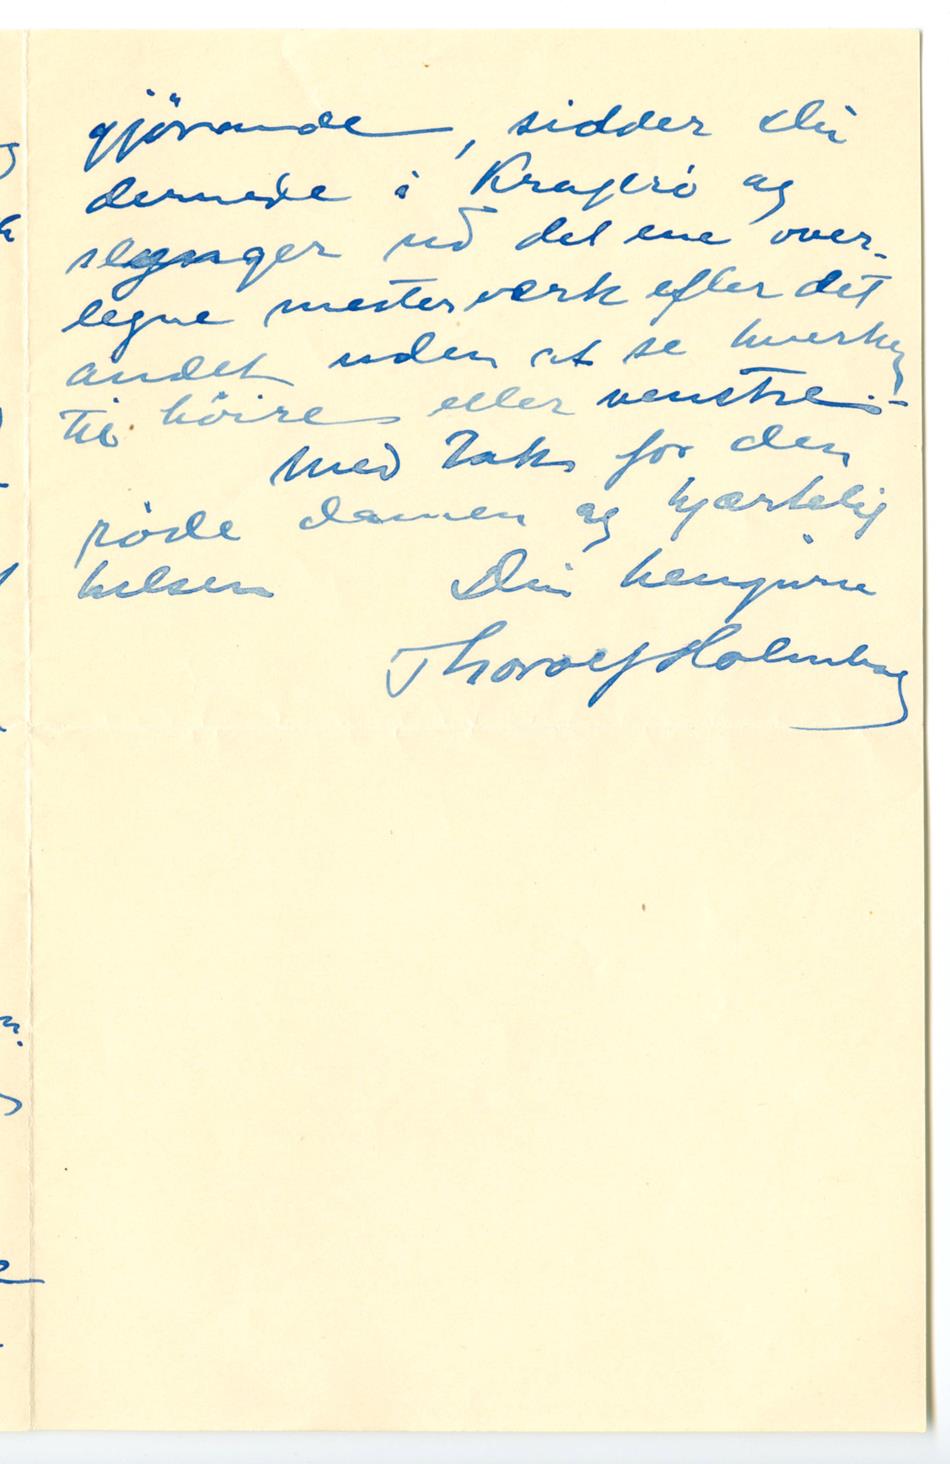 gjörande, sidder Du
dernede i Kragerö og
slynger ud det ene over-
legne mesterværk efter det
andet uden at se hverken
til höire eller venstre.-
Med Tak for den
röde damen og hjærtelig
hilsen Din hengivne
Thorolf Holmboe